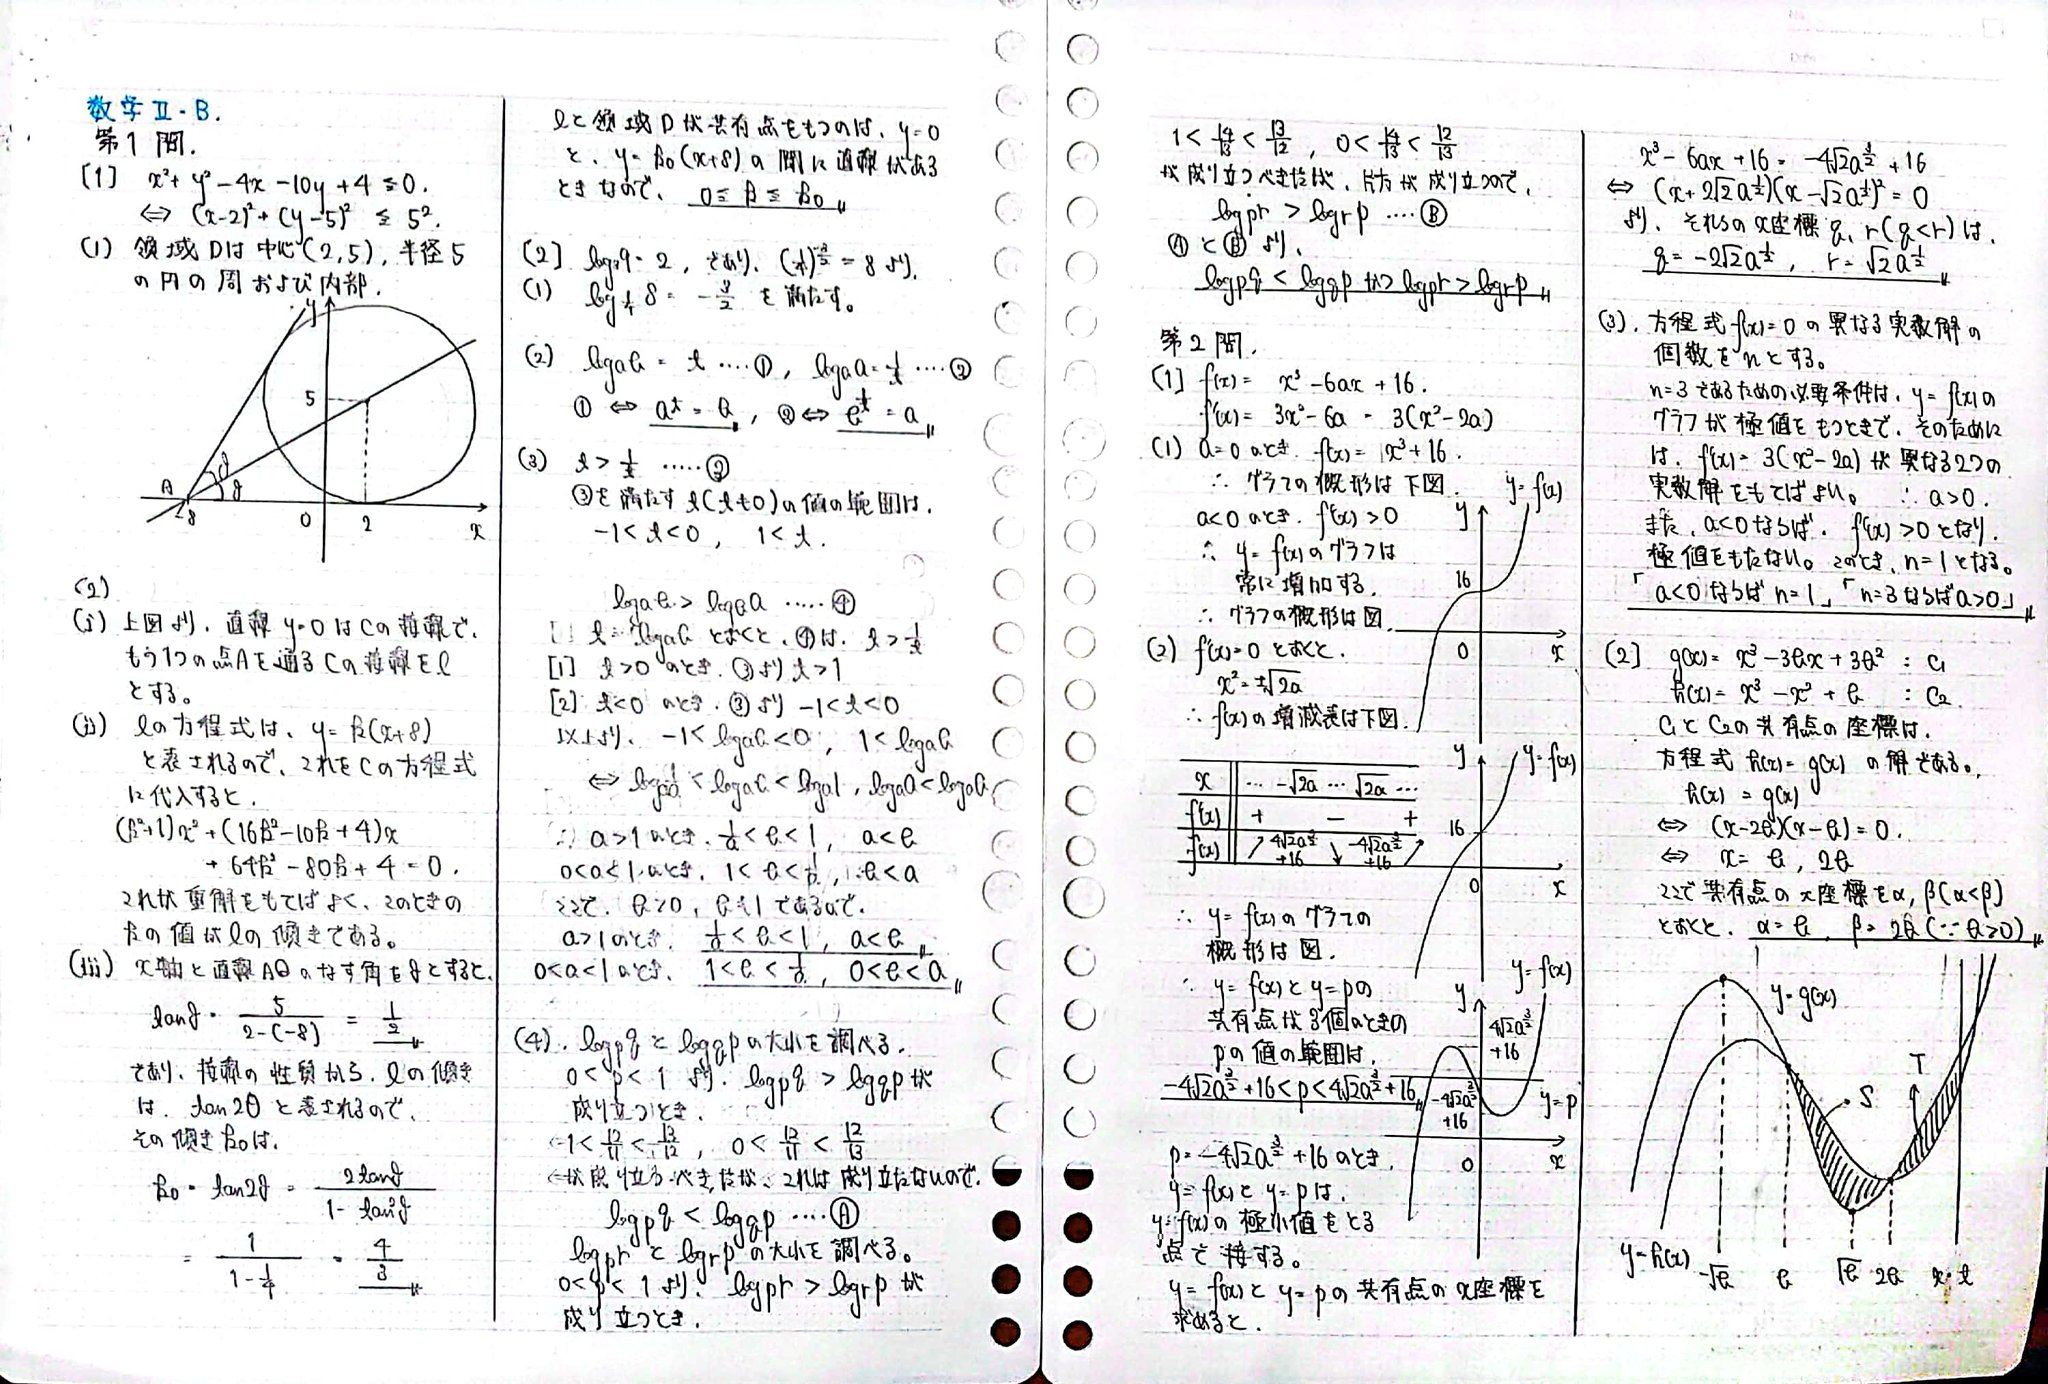 数学Ⅱ・B.
第1問.
[1] x²+y²-4x-10y+4≦0.
⇔ (x-2)²+(y-5)² ≦ 5².
(1) 領域Dは中心(2,5), 半径5
の円の周および内部.
y
5
A
θ
θ
-8
0
2
x
(2)
(i) 上図より, 直線y=0はCの接線で,
もう1つの点Aを通るCの接線をℓ
とする。
(ii) ℓの方程式は、y=k(x+8)
と表されるので、これをCの方程式
に代入すると,
(k²+1)x²+(16k²-10k+4)x
+64k²-80k+4=0.
これが重解をもてばよく、このときの
kの値がℓの傾きである。
(iii) x軸と直線AQのなす角をθとすると,
tanθ=5/(2-(-8))=1/2
であり, 接線の性質から, ℓの傾き
は, tan2θと表されるので,
その傾きk₀は,
k₀=tan2θ=2tanθ/(1-tan²θ)
=1/(1-1/4)=4/3
ℓと領域Dが共有点をもつのは, y=0
と, y=k₀(x+8)の間に直線がある
ときなので, 0≦k≦k₀
[2]
(1)
log₁/₄8=-3/2を満たす。
(2) logₐb=t ....①, log_b a=1/t ....②
①⇔aᵗ=b, ②⇔b^(1/t)=a
(3) t>1/t .....③
③を満たすt(t≠0)の値の範囲は,
-1<t<0, 1<t.
logₐb>log_b a .....④
t=logₐbとおくと, ④は, t>1/t
[1] t>0のとき, ③よりt>1
[2] t<0のとき, ③より-1<t<0
以上より, -1<logₐb<0, 1<logₐb
⇔logₐ1/a<logₐb<logₐ1, logₐa<logₐb
a>1のとき, 1/a<b<1, a<b
0<a<1のとき, 1<b<1/a, b<a
ここで, b>0, b≠1であるので,
a>1のとき, 1/a<b<1, a<b
0<a<1のとき, 1<b<1/a, 0<b<a
(4). log_p qとlog_q pの大小を調べる.
0<p<1より, log_p q>log_q pが
成り立つとき,
1<12/11<13/12, 0<12/11<12/13
が成り立つべきだが, これは成り立たないので,
log_p q<log_q p ....Ⓐ
log_p rとlog_r pの大小を調べる。
0<p<1より, log_p r>log_r pが
成り立つとき,
1<14/13<13/12, 0<14/13<12/13
が成り立つべきだが, 片方が成り立つので,
log_p r>log_r p ....Ⓑ
ⒶとⒷより,
log_p q<log_q pかつlog_p r>log_r p
第2問.
[1] f(x)=x³-6ax+16.
f'(x)=3x²-6a=3(x²-2a)
(1) a=0のとき, f(x)=x³+16.
∴ グラフの概形は下図.
a<0のとき, f'(x)>0
∴ y=f(x)のグラフは
常に増加する.
∴ グラフの概形は図.
y
y=f(x)
16
0
x
(2) f'(x)=0とおくと,
x²=±√2a
∴ f(x)の増減表は下図.
x … -√2a … √2a …
f'(x) + - +
f(x) ↗ 4√2a^(3/2)+16 ↘ -4√2a^(3/2)+16 ↗
y
y=f(x)
16
0
x
∴ y=f(x)のグラフの
概形は図.
∴ y=f(x)とy=pの
共有点が3個のときの
pの値の範囲は,
-4√2a^(3/2)+16<p<4√2a^(3/2)+16
y
y=f(x)
4√2a^(3/2)+16
-4√2a^(3/2)+16
y=p
0
x
p=-4√2a^(3/2)+16のとき,
y=f(x)とy=pは,
y=f(x)の極小値をとる
点で接する。
y=f(x)とy=pの共有点のx座標を
求めると,
x³-6ax+16=-4√2a^(3/2)+16
⇔(x+2√2a^(1/2))(x-√2a^(1/2))²=0
より, それらのx座標q, r(q<r)は,
q=-2√2a^(1/2), r=√2a^(1/2)
(3). 方程式f(x)=0の異なる実数解の
個数をnとする。
n=3であるための必要条件は, y=f(x)の
グラフが極値をもつときで, そのために
は, f'(x)=3(x²-2a)が異なる2つの
実数解をもてばよい。 ∴a>0.
また, a<0ならば, f'(x)>0となり,
極値をもたない。このとき, n=1となる。
「a<0ならばn=1」「n=3ならばa>0」
[2] g(x)=x³-3bx+3b² : C₁
h(x)=x³-x²+b : C₂
C₁とC₂の共有点の座標は,
方程式h(x)=g(x)の解である。
h(x)=g(x)
⇔(x-2b)(x-b)=0.
⇔x=b, 2b
ここで共有点のx座標をα, β(α<β)
とおくと, α=b, β=2b(∵b>0)
y=g(x)
S
T
y=h(x)
-√b
b
√b
2b
x=t